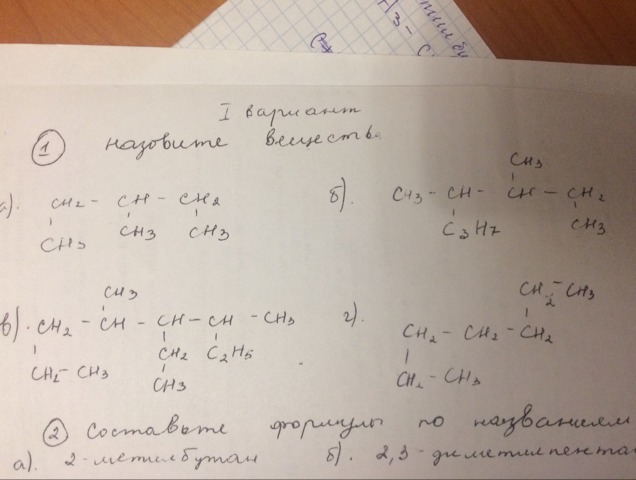 I вариант
① назовите вещества
а). CH2 - CH - CH2
CH3 CH3 CH3
б). CH3 - CH - CH - CH2
CH3
C3H7 CH3
в). CH2 - CH - CH - CH - CH3
CH3
CH2 - CH3 CH2 C2H5
CH3
г). CH2 - CH2 - CH2
CH2 - CH3
CH2 - CH3
② Составьте формулы по названиям
а). 2-метилбутан б). 2,3-диметилпента